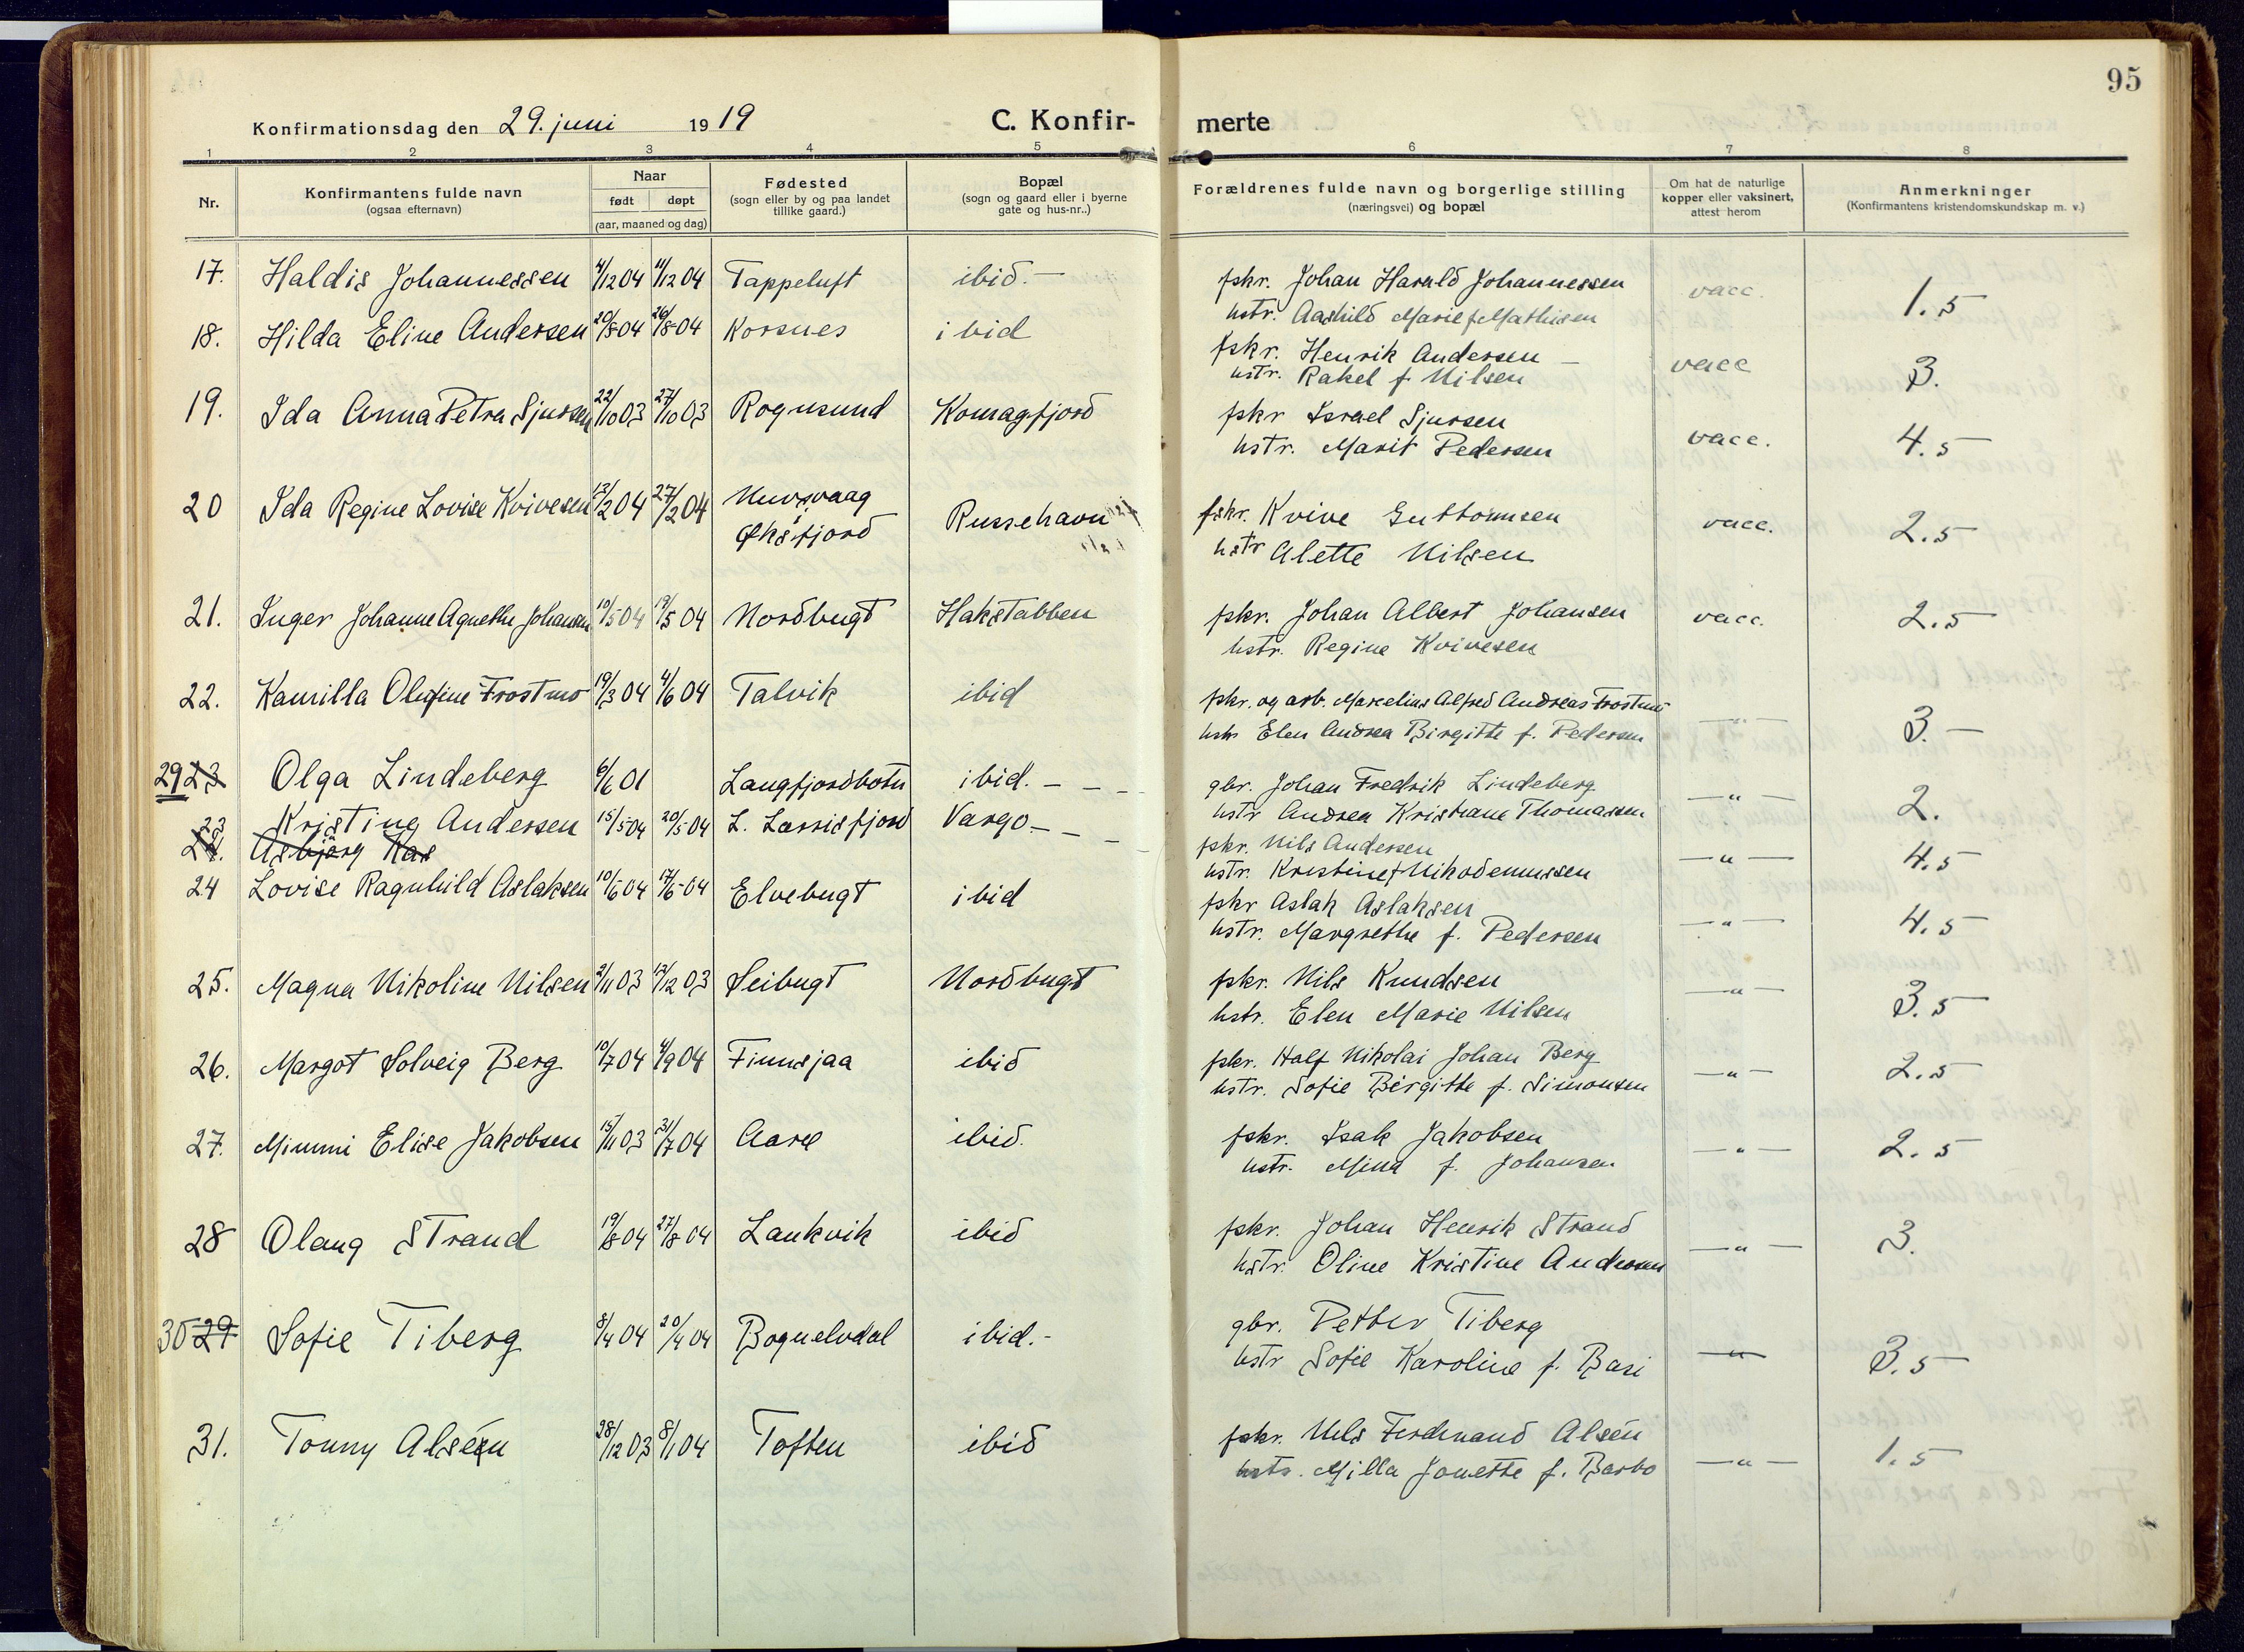 95
Konfirmationsdag den 29. juni 1919
C. Konfir-
merte
1 2 3 4 5 6 7 8
Nr.
Konfirmantens fulde navn
(ogsaa efternavn)
Naar
født døpt
(aar, maaned og dag)
Fødested
(sogn eller by og paa landet
tillike gaard.)
Bopæl
(sogn og gaard eller i byerne
gate og hus-nr..)
Forældrenes fulde navn og borgerlige stilling
(næringsvei) og bopæl
Om hat de naturlige
kopper eller vaksinert,
attest herom
Anmerkninger
(Konfirmantens kristendomskundskap m. v.)
17. Haldis Johannessen 4/12 04 11/12 04 Tappeluft ibid. — fskr. Johan Harald Johannessen vacc. 1.5
hstr. Aashild Marie f Mathisen
18. Hilda Eline Andersen 20/8 04 26/8 04 Korsnes ibid fskr. Henrik Andersen — vacc 3.
hstr. Rakel f Nilsen
19. Ida Anna Petra Sjursen 22/10 03 27/10 03 Rognsund Komagfjord fskr Israel Sjursen vacc. 4.5
hstr. Marit Pedersen
20 Ida Regine Lovise Kvivesen 13/2 04 27/2 04 Nuvsvaag Russehavn fskr. Kvive Guttormsen vacc. 2.5
i
Øksfjord hstr Alette Nilsen
21. Inger Johanne Agnethe Johansen 10/5 04 19/5 04 Nordbugt Hakstabben fskr. Johan Albert Johansen vacc. 2.5
hstr. Regine Kvivesen
22. Kamilla Olufine Trostmo 19/3 04 4/6 04 Talvik ibid fskr. og arb. Marcelius Alfred Andreas Trostmo — " — 3. —
hstr Elen Andrea Birgitte f. Pedersen
29 23 Olga Lindeberg 6/6 01 Langfjordbotn ibid. — gbr. Johan Fredrik Lindeberg — " — 2.
hstr Andrea Kristiane Thomassen
23 Kristine Andersen 15/5 04 20/5 04 L. Lerrisfjord Vargo — fskr. Nils Andersen — " — 4.5
24. Asbjørg Kas hstr. Kristine f Nikodemussen
24 Lovise Ragnhild Aslaksen 10/6 04 17/6 04 Elvebugt ibid fskr Aslak Aslaksen — " — 4.5
hstr. Margrethe f. Pedersen
25. Magna Nikoline Nilsen 2/11 03 12/12 03 Seibugt Nordbugt fskr. Nils Knudsen — " — 3.5
hstr. Elen Marie Nilsen
26. Margot Solveig Berg 10/7 04 4/9 04 Finnsjaa ibid fskr. Half Nikolai Johan Berg — " — 2.5
hstr. Sofie Birgitte f. Simonsen
27. Mimmi Elise Jakobsen 15/11 03 31/7 04 Aarø ibid. fskr. Isak Jakobsen — " — 2.5
hstr. Mina f. Johansen
28 Olaug Strand 19/8 04 27/8 04 Lankvik ibid fskr. Johan Henrik Strand — " — 3.
hstr. Oline Kristine Andersen
30 29 Sofie Tiberg 8/4 04 20/4 04 Bognelvdal ibid. - gbr. Petter Tiberg — " — 3.5
hstr Sofie Karoline f. Basi
31. Tonny Alsén 28/12 03 8/1 04 Toften ibid fskr. Nils Ferdinand Alsén — " — 1.5
hstr. Milla Jonette f. Barbo